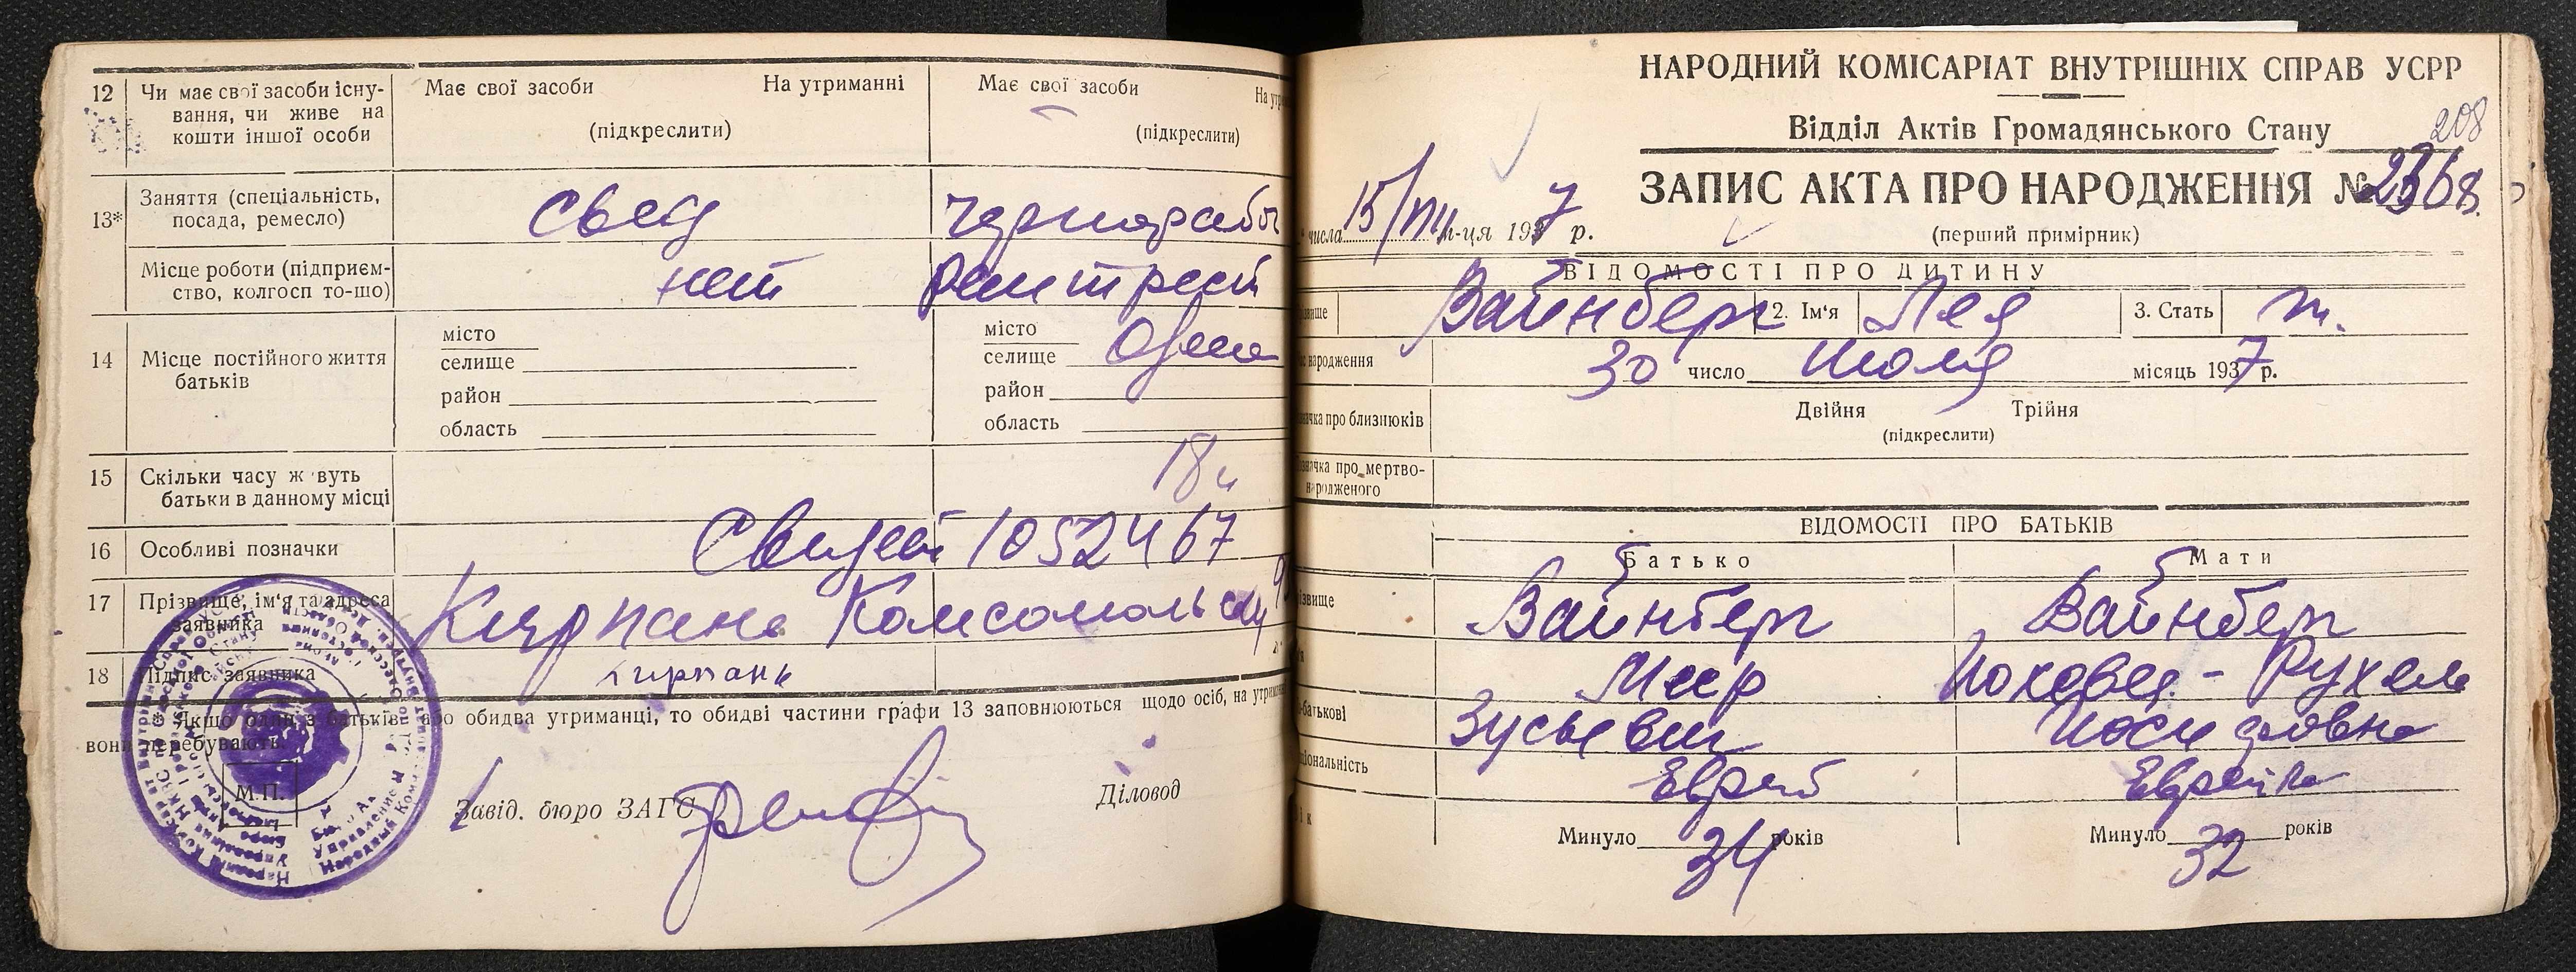 12 Чи має свої засоби існу-
вання, чи живе на
кошти іншої особи
Має свої засоби На утриманні
(підкреслити)
Має свої засоби
(підкреслити)
13* Заняття (спеціальність,
посада, ремесло)
чернорабо
Місце роботи (підприєм-
ство, колгосп то-що)
нет
14 Місце постійного життя
батьків
місто
селище
район
область
місто
селище Одесса
район
область
15 Скільки часу ж вуть
батьки в данному місці
18
16 Особливі позначки
Свидет 1052467
17 Прізвище, ім'я та адреса
заявника
Кирпань Комсомольск
18 Підпис заявника
Кирпань
* Якщо один з батьків або обидва утриманці, то обидві частини графи 13 заповнюються щодо осіб, на утрим
вони перебувають.
М.П.
Завід. бюро ЗАГС
Діловод
НАРОДНИЙ КОМІСАРІАТ ВНУТРІШНІХ СПРАВ УСРР
Відділ Актів Громадянського Стану
208
ЗАПИС АКТА ПРО НАРОДЖЕННЯ №
числа 15/VIII м-ця 1937 р.
(перший примірник)
ВІДОМОСТІ ПРО ДИТИНУ
Вайнберг 2. Ім'я Лея 3. Стать ж.
народження 30 число Июля місяць 1937 р.
начка про близнюків
Двійня Трійня
(підкреслити)
начка про мертво-
народженого
ВІДОМОСТІ ПРО БАТЬКІВ
Батько Мати
звище Вайнберг Вайнберг
Меер Иохевед - Рухель
батькові Зусьевич Иосифовна
ціональність Еврей Еврейка
Минуло 34 років Минуло 32 років